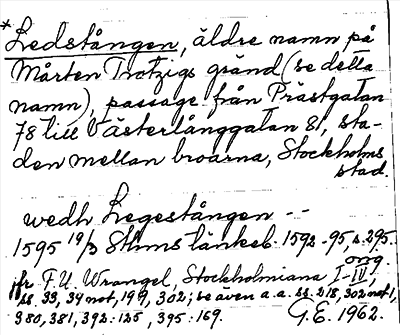 *Ledstången, äldre namn på
Mårten Trotzigs gränd (se detta
namn), passage från Prästgatan
78 till Västerlånggatan 81, sta-
den mellan broarna, Stockholms
stad.
wedh Legestången --
1595 19/3 Sthms tänkeb. 1592-95, s. 295.
orig.
jfr F.U. Wrangel, Stockholmiana I-IV,
ss. 33, 34 not, 199, 302; se även a.a. ss. 218, 302 not 1,
380, 381, 392:125, 395:169.
G.E. 1962.